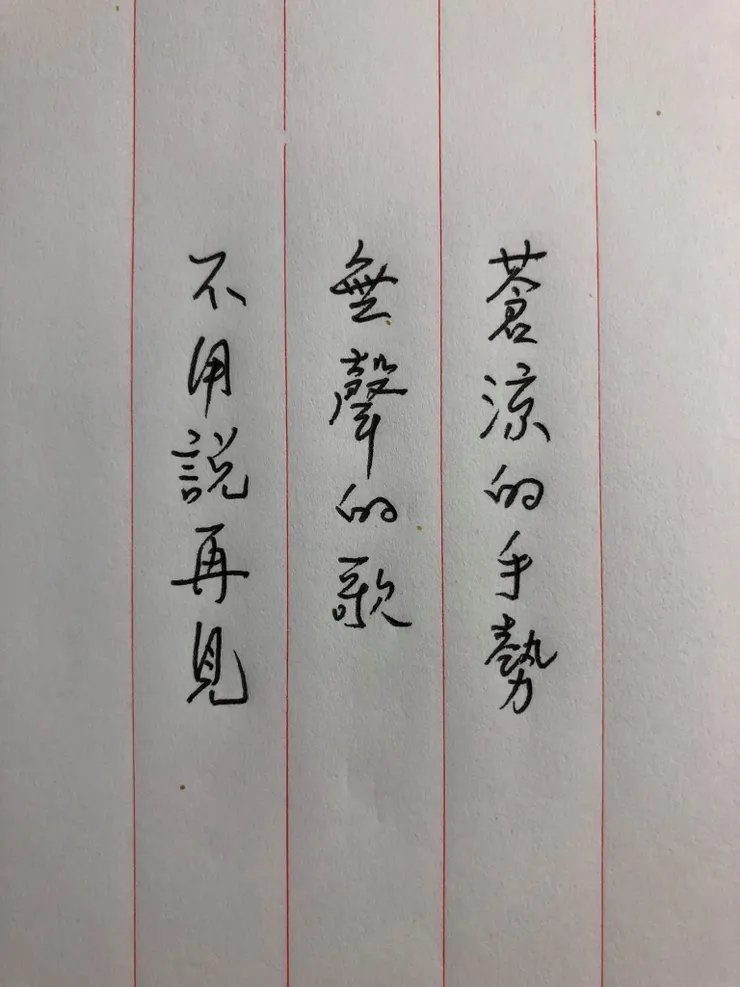 蒼涼的手勢
無聲的歌
不用說再見